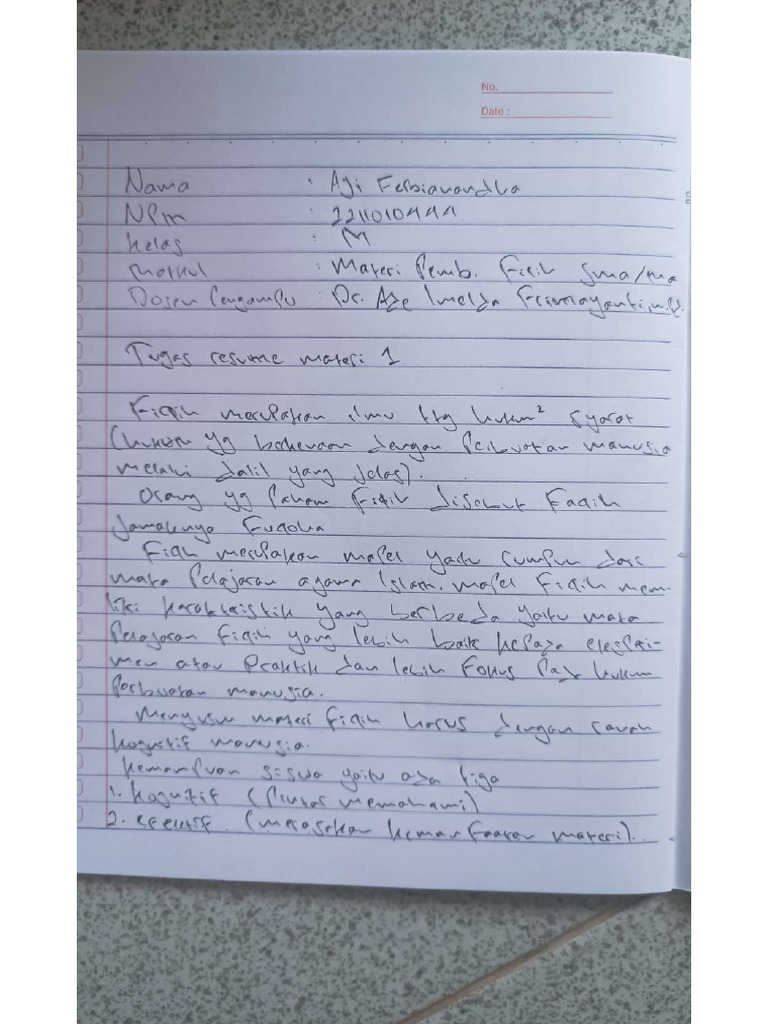 No.
Date :
Nama : Aji Ferbianandha
NPM : 2211010444
Kelas : M
Matkul : Materi Pemb. Fiqih SMA/MA
Dosen Pengampu : Dr. Ade Imelda Frimayanti, M.Pd.
Tugas resume materi 1
Fiqih merupakan ilmu ttg hukum² syarat
(hukum yg berkenaan dengan Perbuatan manusia
melalui dalil yang jelas).
Orang yg Paham Fiqih disebut Faqih
Jamaknya Fuqoha
Fiqih merupakan mapel yaitu rumpun dari
mata Pelajaran agama Islam. mapel Fiqih mem-
liki karakteristik yang berbeda yaitu mata
Pelajaran Fiqih yang lebih baik kepada eksperi-
men atau Praktik dan lebih Fokus Pada hukum
Perbuatan manusia.
Menyusun materi Fiqih harus dengan ranah
kognitif manusia.
Kemampuan siswa yaitu ada tiga
1. kognitif (Pintar memahami)
2. efektif (merasakan kemanfaatan materi)..